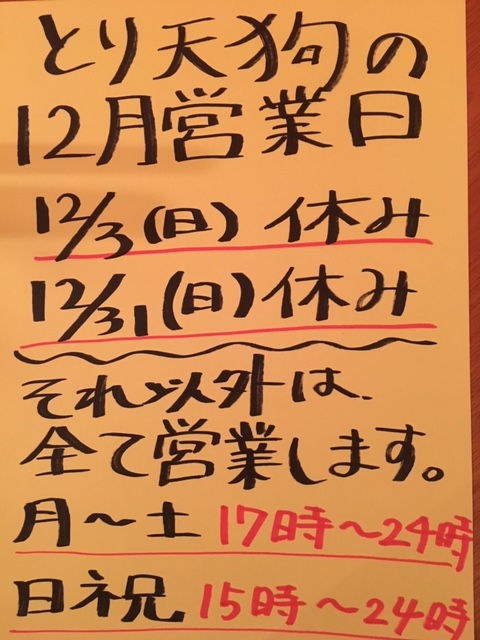 とり天狗の
12月営業日
12/3(日) 休み
12/31(日) 休み
それ以外は、
全て営業します。
月〜土 17時〜24時
日祝 15時〜24時